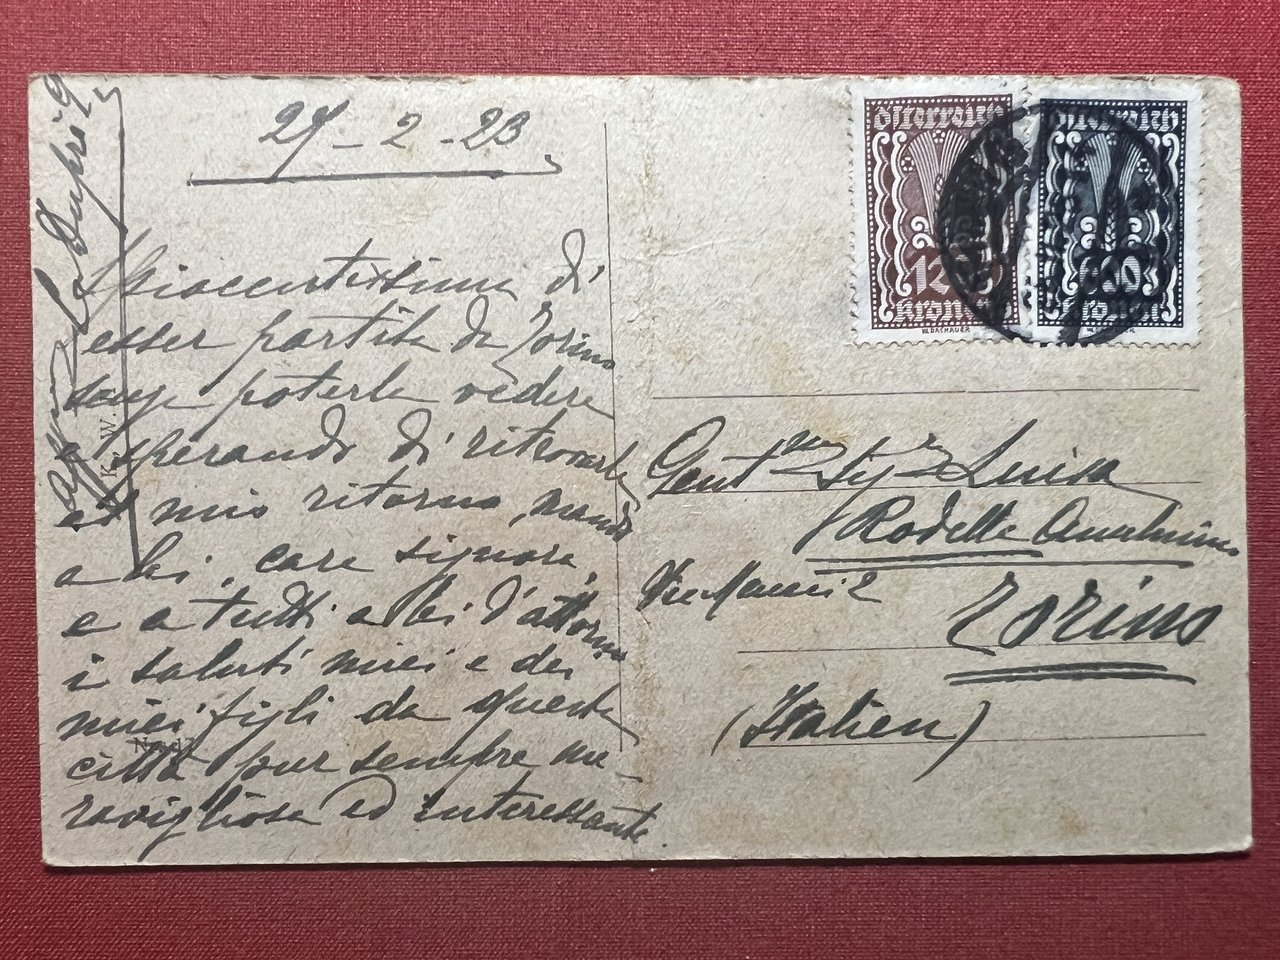 27-2-23
Spiacentissima di
esser partita da Torino
senza poterla vedere
e sperando di ritrovarla
al mio ritorno, mando
a lei, care signore,
e a tutti a lei d'attorno
i saluti miei e dei
miei figli da questa
città pur sempre me-
ravigliosa ed interessante.
Dupré
K. W.
N
Österreich
Kronen
W. DACHAUER
Österreich
Kronen
Gentma Sigra Luisa
Rodella
Torino
(Italien)